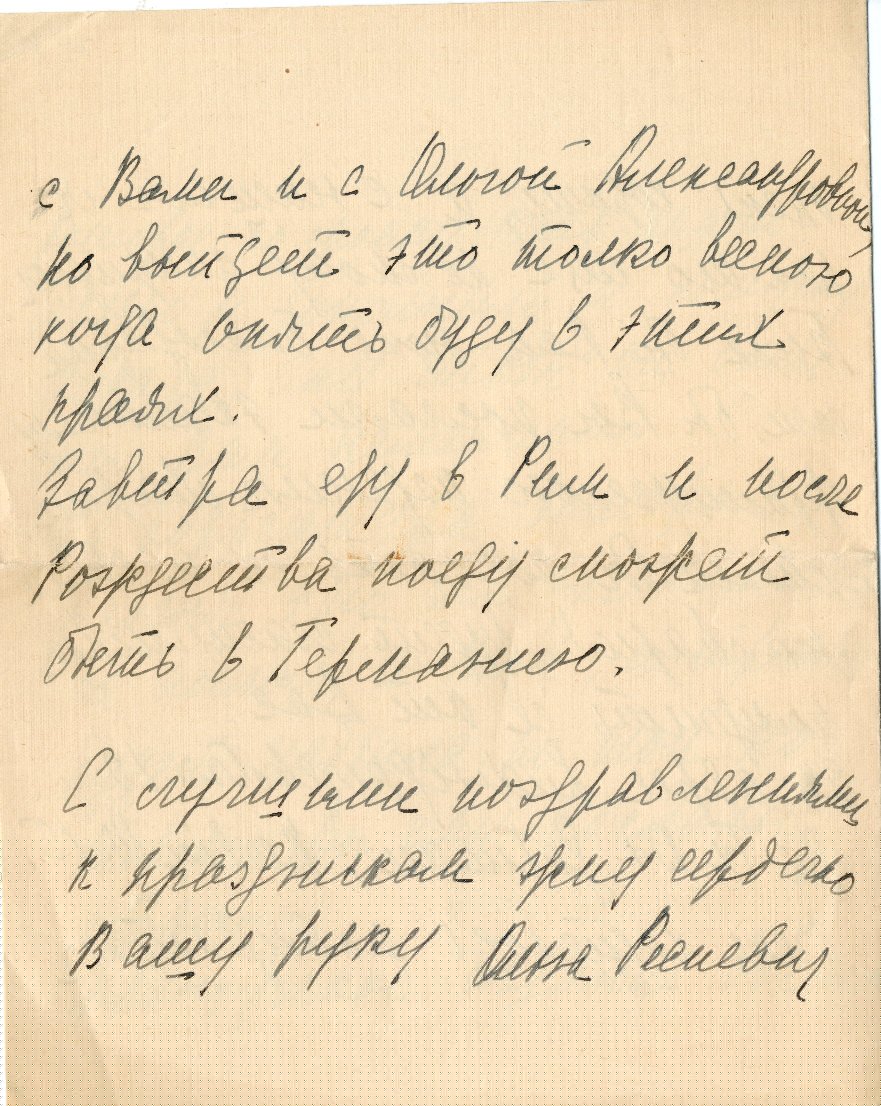 с Вами и с Ольгой Александровной,
но выйдет это только весною
когда опять буду в этих
краях.
Завтра еду в Рим и после
Рождества поеду может
быть в Германию.
С лучшими поздравлениями
к праздникам жму сердечно
Вашу руку Ольга Ресневич